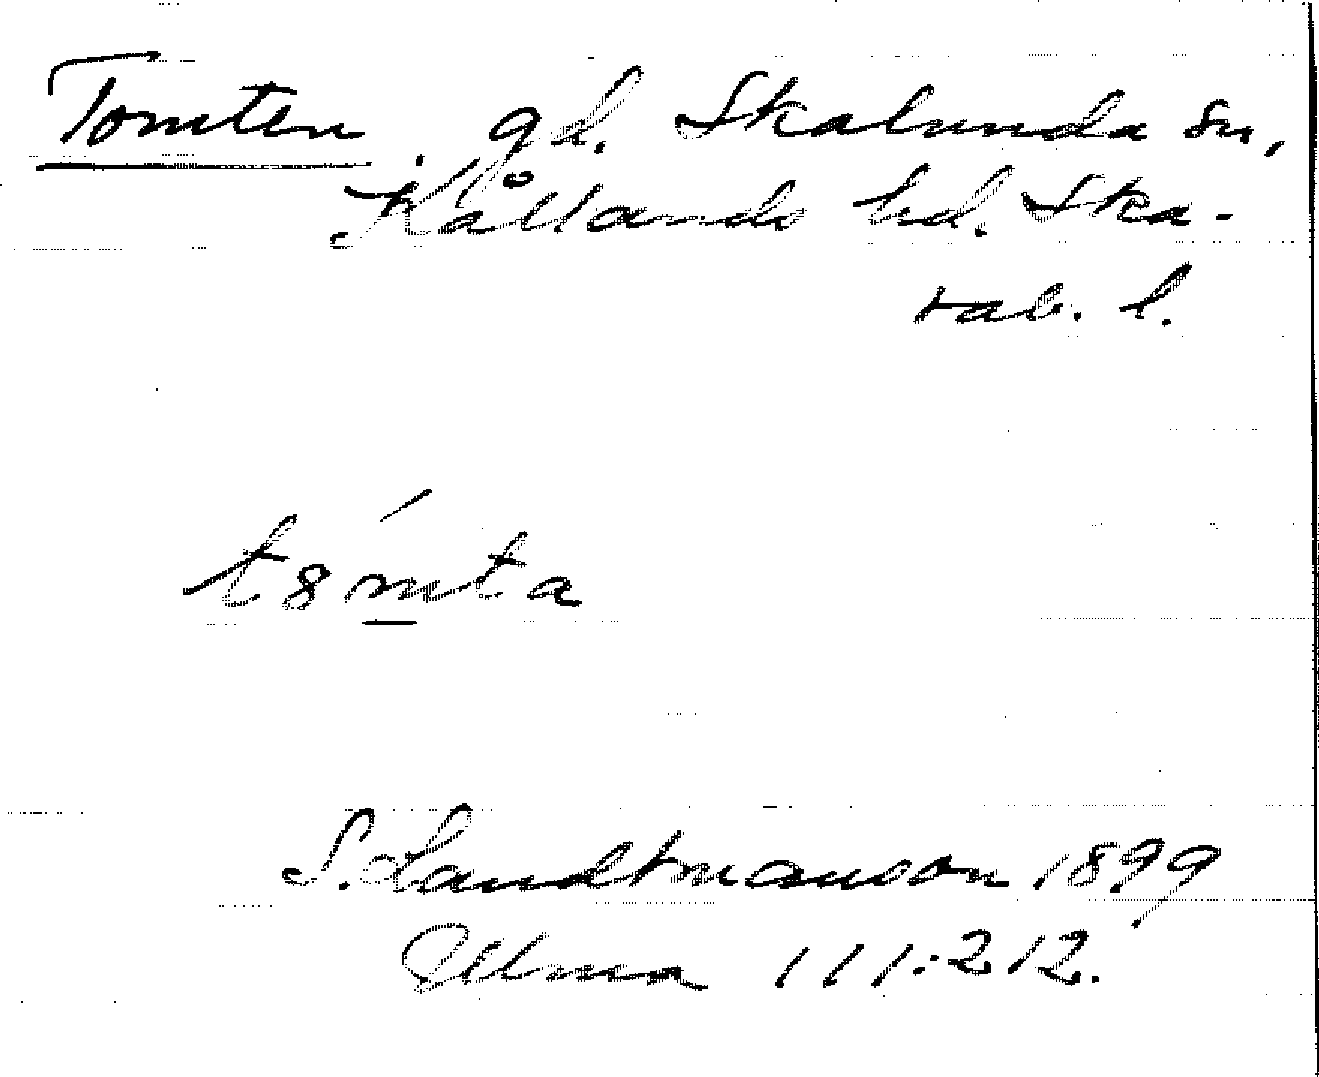 Tomten. gd. Skalunda sn,
Kållands hd. Ska-
rab. l.
t8ḿ̲ta
S. Landtmanson 1899
Ulma 111:212.